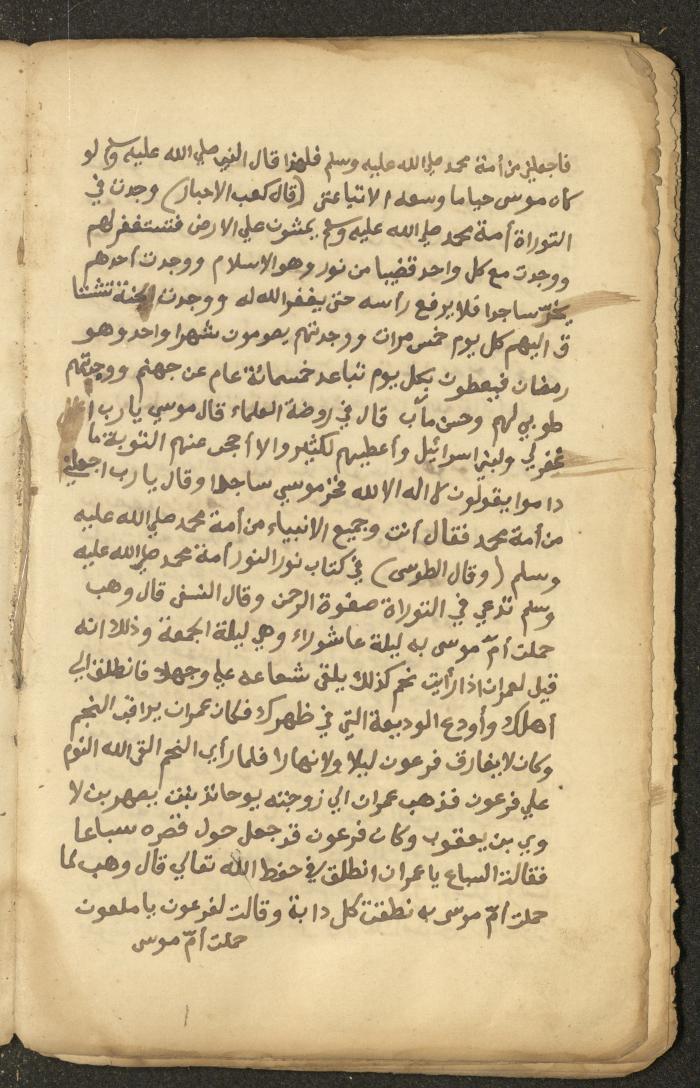 فاجعلني من أمة محمد صلي الله عليه وسلم فلهذا قال النبي صلي الله عليه وسلم لو
كان موسى حيا ما وسعه الا اتباعي (قال كعب الاحبار) وجدت في
التوراة أمة محمد صلي الله عليه وسلم يمشون علي الارض فتستغفر لهم
ووجدت مع كل واحد قضيبا من نور وهو الاسلام ووجدت أحدهم
يخرّ ساجدا فلا يرفع رأسه حتى يغفر الله له ووجدت الجنة تشتا
ق اليهم كل يوم خمس مرات ووجدتهم يصومون شهرا واحد وهو
رمضان فيعطون بكل يوم تباعد خمسمائة عام عن جهنم ووجدتهم
طوبي لهم وحسن مآب قال في روضة العلماء قال موسي يا رب
غفر لي ولبني اسرائيل وأعطيهم لكثير والا أحجر عنهم التوبة ما
داموا يقولون لا اله الا الله فخر موسي ساجدا وقال يا رب اجعلني
من أمة محمد فقال أنت وجميع الانبياء من أمة محمد صلي الله عليه
وسلم (وقال الطوسى) في كتاب نور النور أمة محمد صلي الله عليه
وسلم تدعي في التوراة صفوة الرحمن وقال النسفى قال وهب
حملت أمّ موسى به ليلة عاشوراء وهي ليلة الجمعة وذلك انه
قيل لعمران اذا رأيت نجم كذلك يلقى شعاعه علي وجهك فانطلق الي
أهلك وأودع الوديعة التي في ظهرك فكان عمران يراقب النجم
وكان لا يفارق فرعون ليلا ولا نهارا فلما رأى النجم القى الله النوم
علي فرعون فذهب عمران الي زوجته يوحانذ بنت يصهر بن لا
وي بن يعقوب وكان فرعون قد جعل حول قصره سباعا
فقالت السباع يا عمران انطلق في حفظ الله تعالي قال وهب لما
حملت أمّ موسى به نطقت كل دابة وقالت لفرعون يا ملعون
حملت أمّ موسى